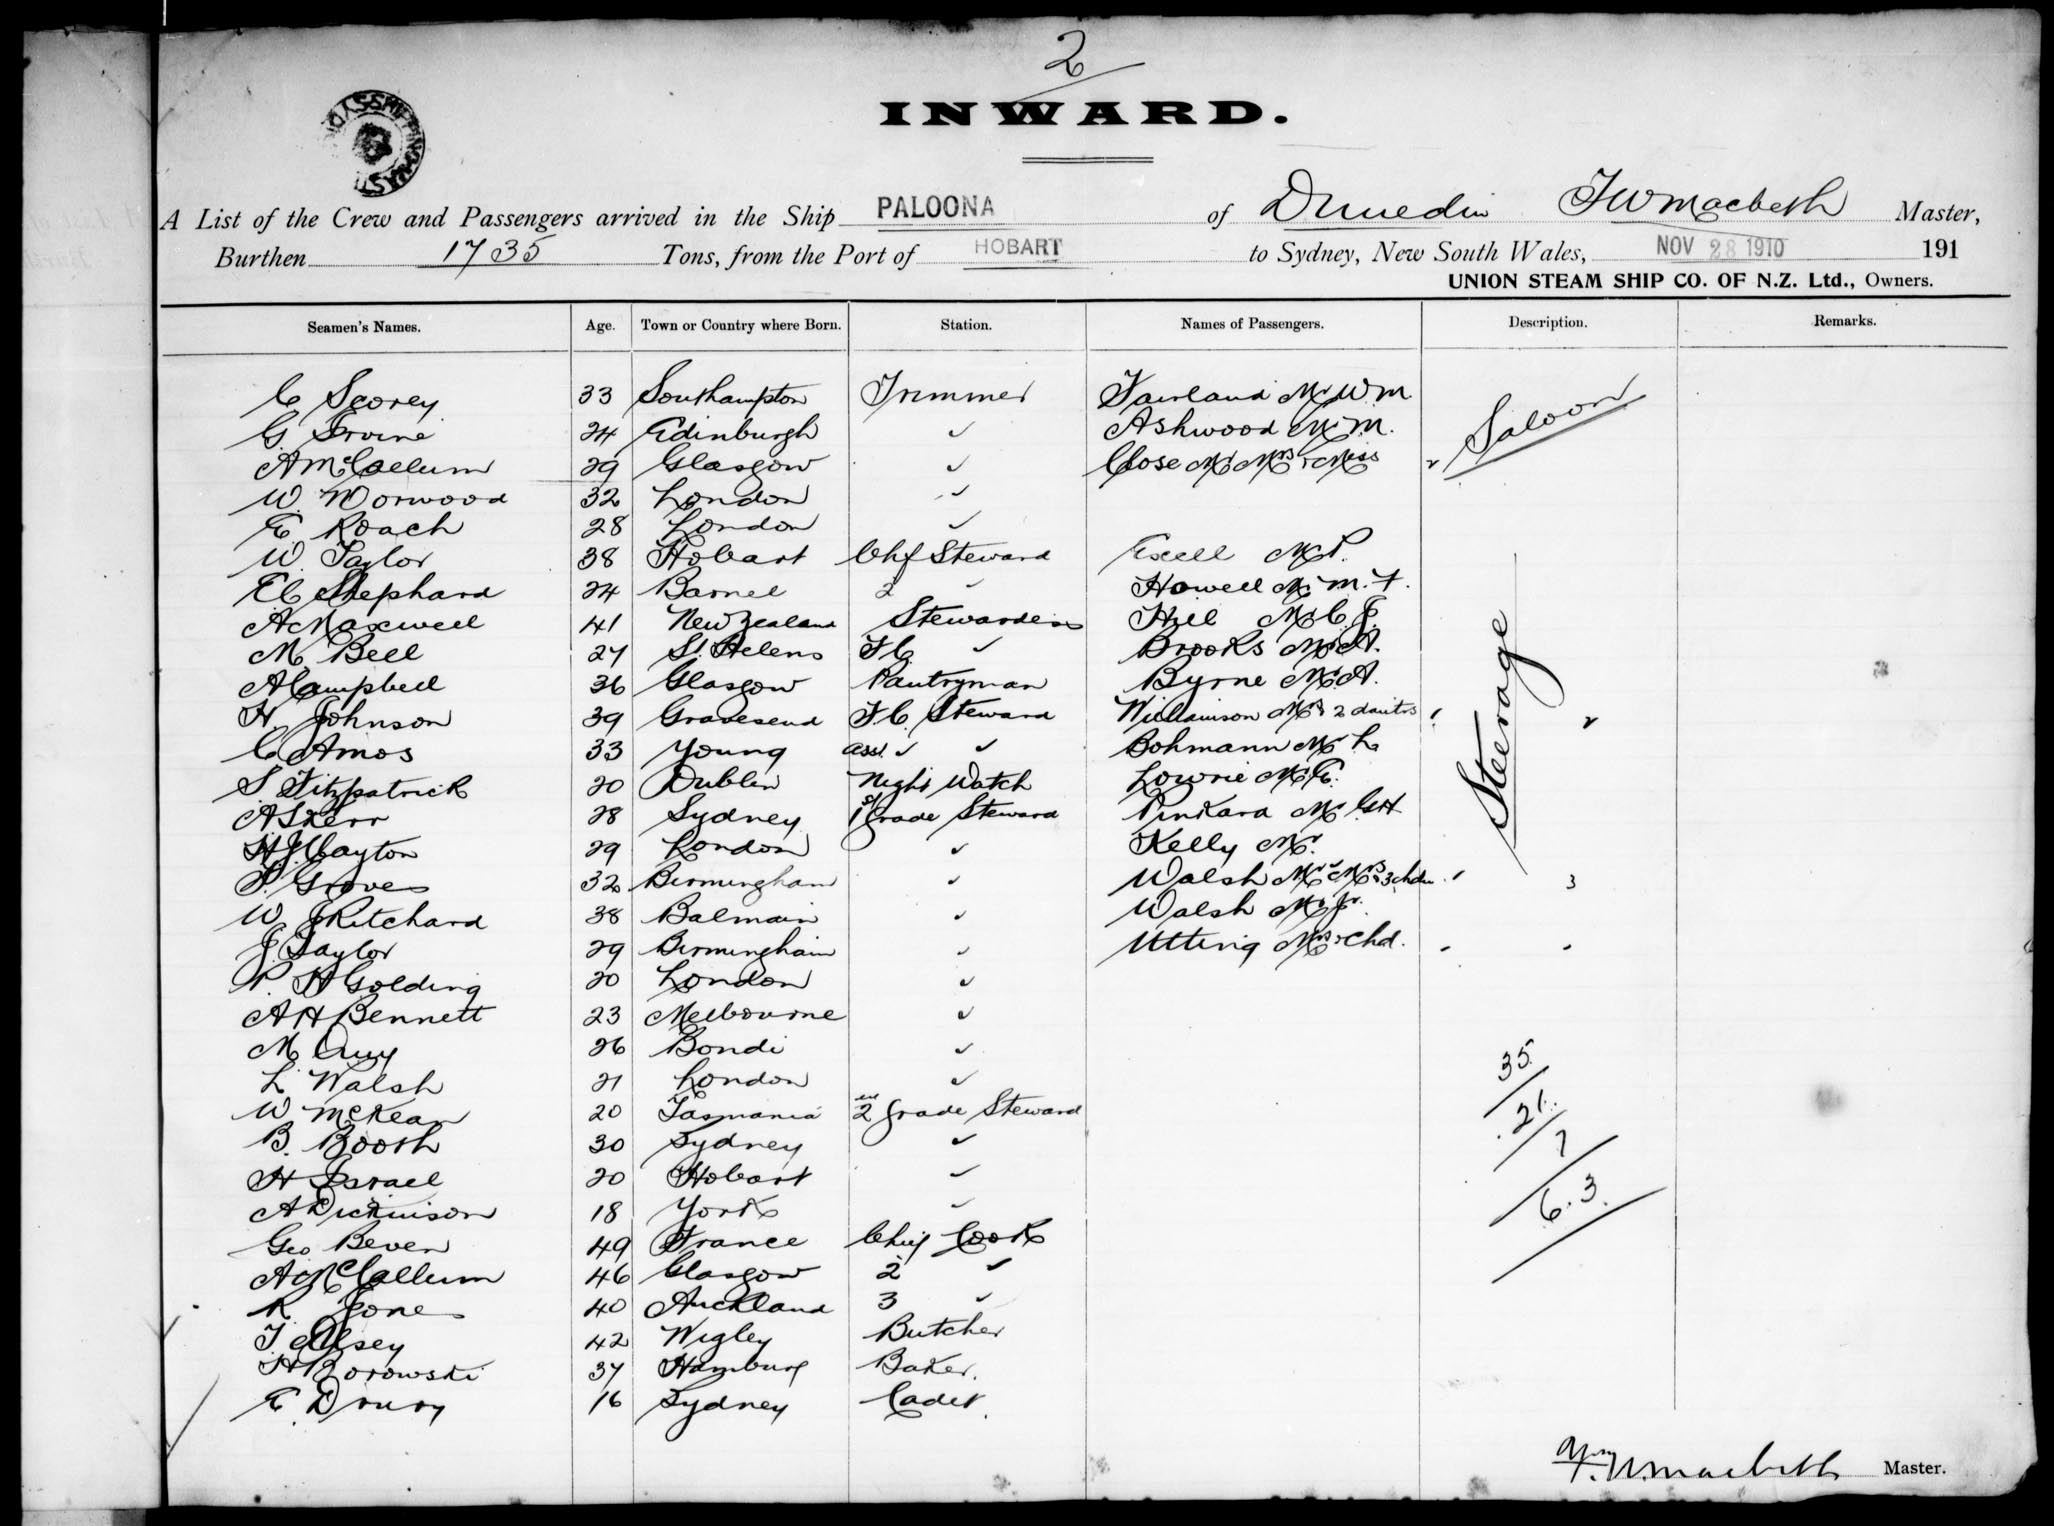 2
INWARD.
A List of the Crew and Passengers arrived in the Ship PALOONA of Dunedin T W Macbeth Master,
Burthen 1735 Tons, from the Port of HOBART to Sydney, New South Wales, NOV 28 1910 191
UNION STEAM SHIP CO. OF N.Z. Ltd., Owners.
Seamen's Names. Age. Town or Country where Born. Station. Names of Passengers. Description. Remarks.
C Scorey 33 Southampton Trimmer Fairland Mr W M Saloon
G. Irvine 24 Edinburgh ✓ Ashwood Mr M.
A McCallum 29 Glasgow ✓ Close Mr Mrs & Miss
W. Norwood 32 London ✓
E. Roach 28 London ✓
W. Taylor 38 Hobart Chf Steward Excell Mr P.
E C Shephard 24 Barnet 2 ✓ Howell Mr M. F. Steerage
A Maxwell 41 New Zealand Stewardess Hill Mr C. J.
M. Bell 27 St. Helens F C. ✓ Brooks Mr A.
A Campbell 36 Glasgow Pantryman Byrne Mr A.
H Johnson 39 Gravesend F. C. Steward Williamson Mrs & 2 daurs
C Amos 33 Young asst ✓ ✓ Bohmann Mr L
S Fitzpatrick 20 Dublin Night Watch Lowrie Mr E.
A S Kerr 28 Sydney 1st Grade Steward Pinkara Mr G H
H. J. Clayton 29 London ✓ Kelly Mr.
Groves 32 Birmingham ✓ Walsh Mr & Mrs & 3 chdn 3
W J Pritchard 38 Balmain ✓ Walsh Mr Jr.
J. Taylor 29 Birmingham ✓ Utting Mrs & Chd.
P. H Golding 20 London ✓
A H Bennett 23 Melbourne ✓
M 26 Bondi ✓ 35
L. Walsh 21 London ✓
W McKean 20 Tasmania 2nd Grade Steward 21
B. Booth 30 Sydney ✓ 7
H Israel 20 Hobart ✓ 63
A Dickinson 18 York ✓
Geo Beven 49 France Chief Cook
A McCallum 46 Glasgow 2 ✓
R Jones 40 Auckland 3 ✓
T. Alsey 42 Wigley Butcher
H Borowski 37 Hamburg Baker.
E. Drury 16 Sydney Cadet.
T. W. Macbeth Master.